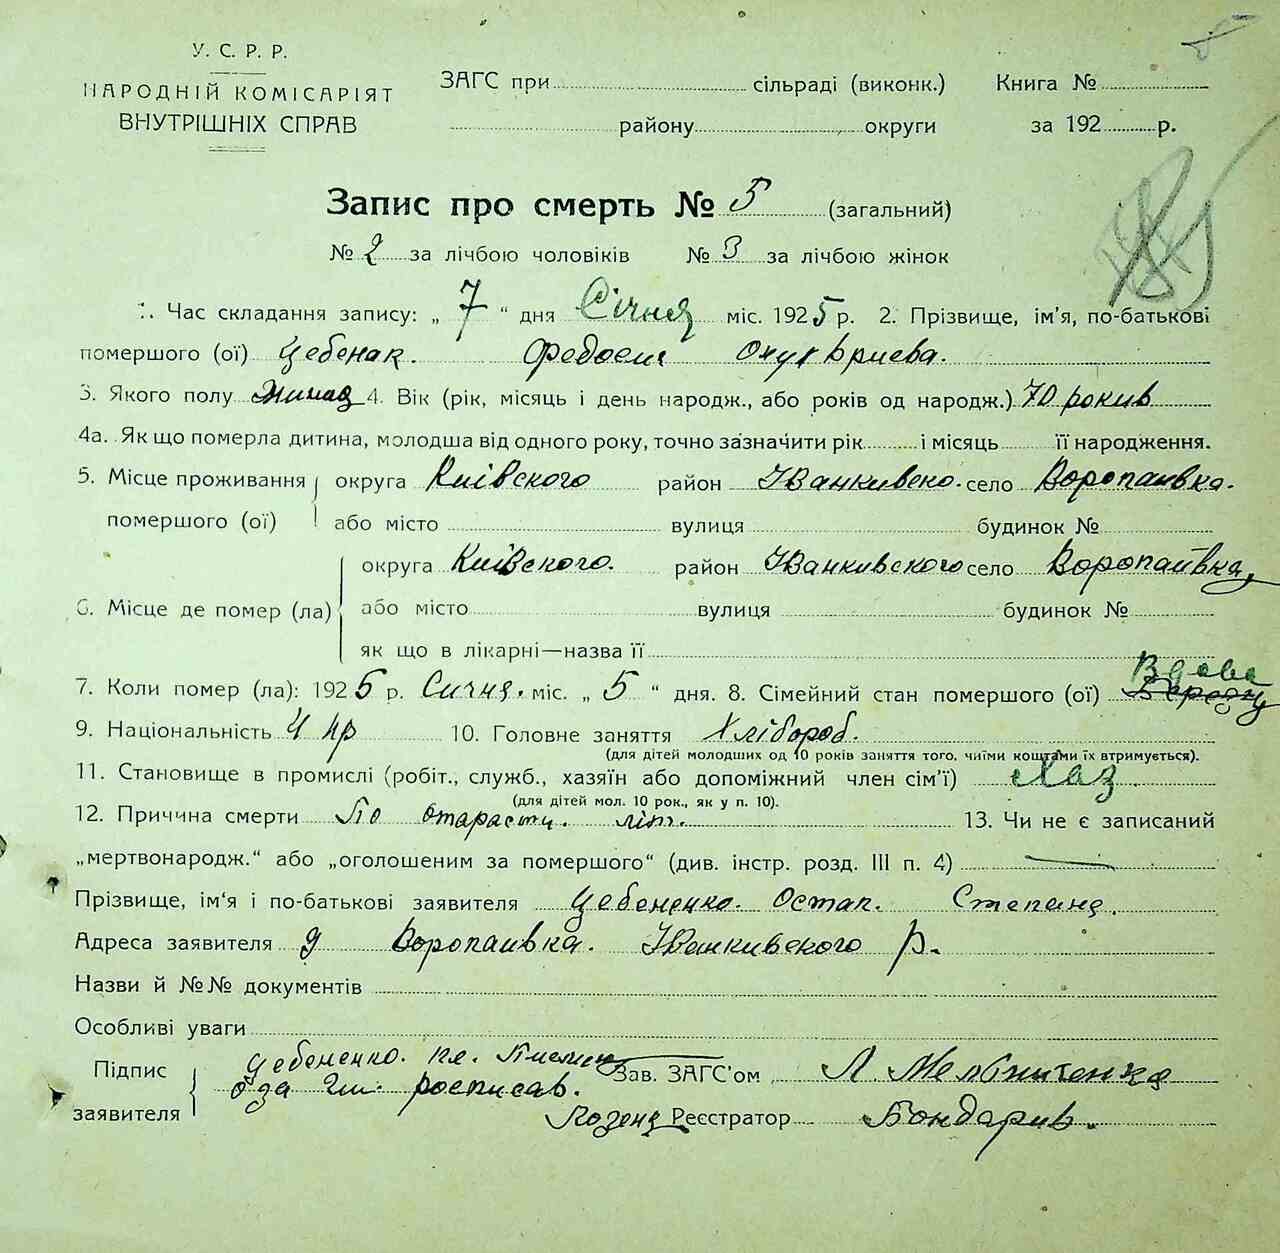 У. С. Р. Р.
НАРОДНІЙ КОМІСАРІЯТ
ВНУТРІШНІХ СПРАВ
ЗАГС при сільраді (виконк.) Книга №
району округи за 192 р.
Запис про смерть № 5 (загальний)
№ 2 за лічбою чоловіків № 3 за лічбою жінок
1. Час складання запису: „ 7 “ дня Січня міс. 1925 р. 2. Прізвище, ім'я, по-батькові
помершого (ої) Цебенак.
3. Якого полу 4. Вік (рік, місяць і день народж., або років од народж.) 70 рокив
4а. Як що померла дитина, молодша від одного року, точно зазначити рік і місяць її народження.
5. Місце проживання округа Київского район село Воропаивка.
помершого (ої) або місто вулиця будинок №
округа Київского. район Іванкивского село Воропаивка
6. Місце де помер (ла) або місто вулиця будинок №
як що в лікарні—назва її
7. Коли помер (ла): 1925 р. Сичня. міс. „ 5 “ дня. 8. Сімейний стан помершого (ої) Вдова
9. Національність Укр 10. Головне заняття Хлібороб.
(для дітей молодших од 10 років заняття того, чиїми коштами їх втримується).
11. Становище в промислі (робіт., служб., хазяїн або допоміжний член сім'ї) Хаз.
(для дітей мол. 10 рок., як у п. 10).
12. Причина смерти По старасти. літ. 13. Чи не є записаний
„мертвонародж.“ або „оголошеним за помершого“ (див. інстр. розд. III п. 4) —
Прізвище, ім'я і по-батькові заявителя Цебененко. Остап. Степана.
Адреса заявителя Воропаивка. Іванкивского р.
Назви й №№ документів
Особливі уваги
Підпис заявителя Цебененко.
росписав.
Зав. ЗАГС'ом Л.
Реєстратор Бондарив.